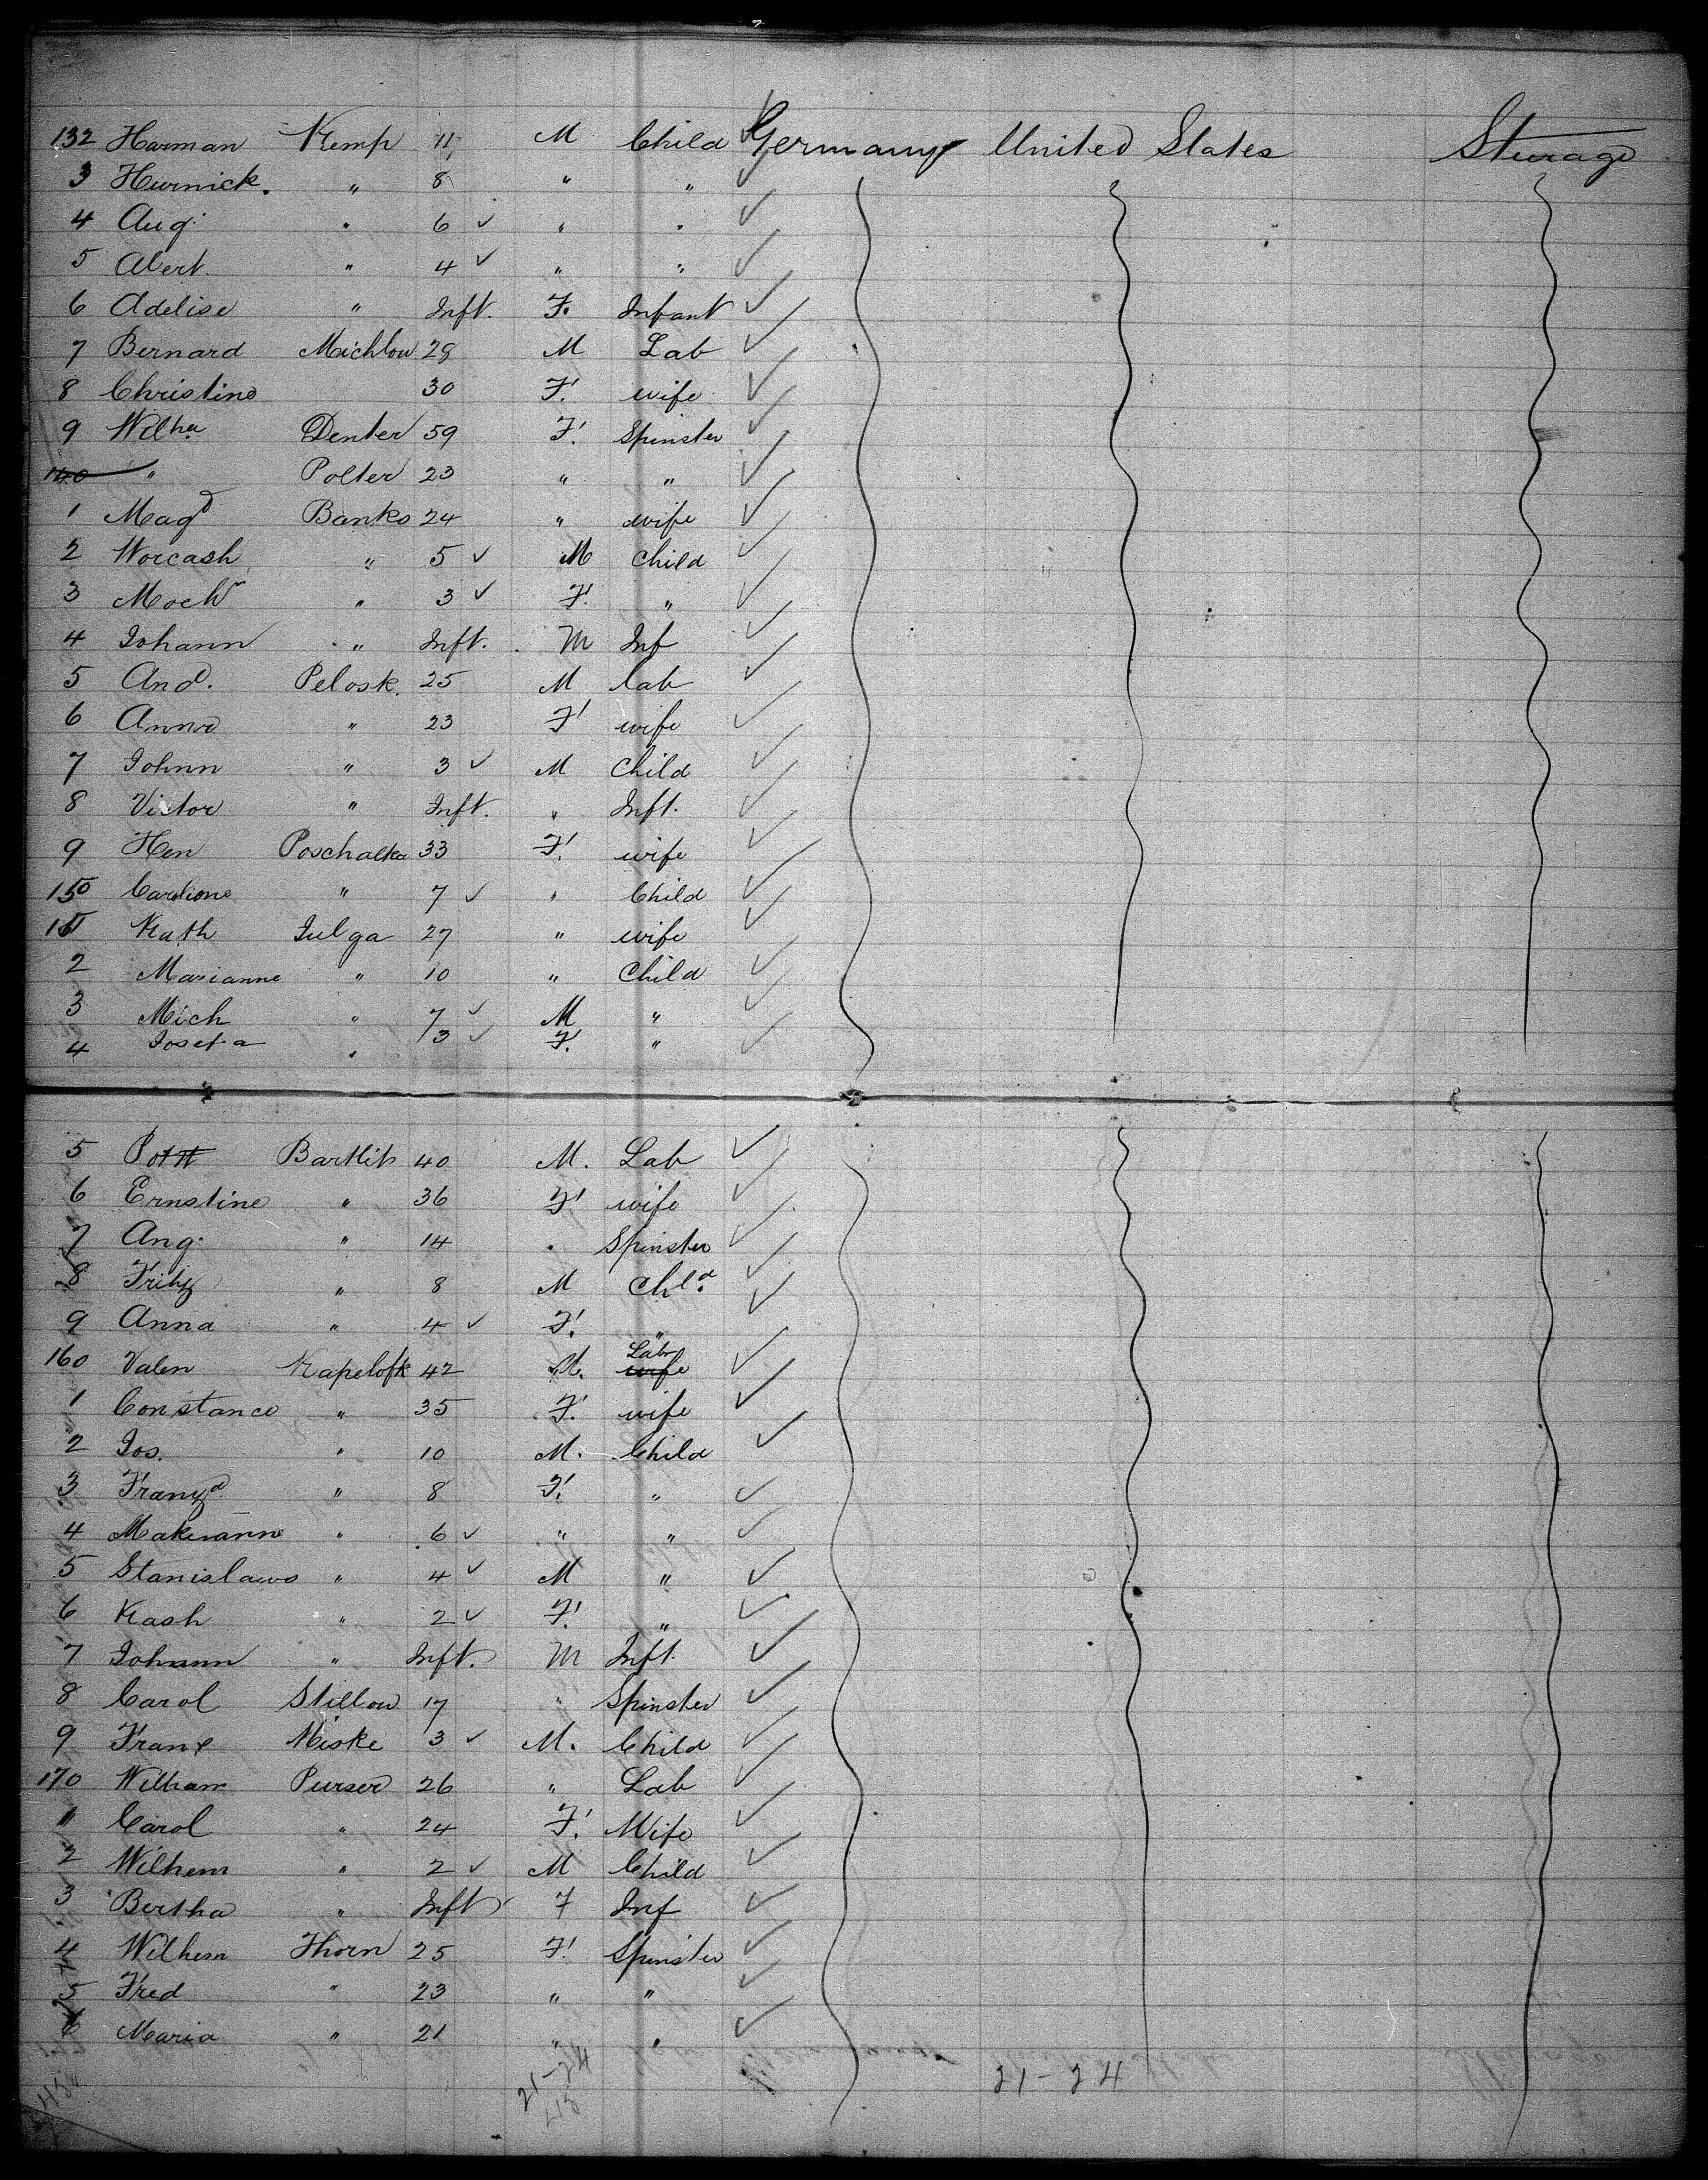 132 Harman Kemp 11 M Child Germany United States Steerage
3 Hurnick. " 8 " "
4 Aug. " 6 " "
5 Abert. " 4 " "
6 Adelise " Inft. F. Infant
7 Bernard Michlow 28 M Lab
8 Christine 30 F. wife
9 Wilha Denter 59 F. Spinster
140 " Polter 23 " "
1 Magd Banks 24 " wife
2 Worcash " 5 M Child
3 " 3 F. "
4 Johann " Inft. M Inf
5 And. Pelosk. 25 M lab
6 Anna " 23 F wife
7 Johnn " 3 M Child
8 Victor " Inft. " Inft.
9 Hen Poschalka 33 F. wife
150 Carolione " 7 " Child
151 Kath Julga 27 " wife
2 Marianne " 10 " Child
3 Mich " 7 M "
4 Josefa " 3 F. "
5 Bartlits 40 M. Lab
6 Ernstine " 36 F wife
7 Aug. " 14 " Spinster
8 Fritz " 8 M Chld.
9 Anna " 4 F. "
160 Valen Kapelofk 42 M. Labr wife
1 Constance " 35 F. wife
2 Jos. " 10 M. Child
3 Franzd " 8 F. "
4 " 6 " "
5 Stanislaws " 4 M "
6 Kash " 2 F. "
7 Johann " Inft. M Inft.
8 Carol Stillow 17 " Spinster
9 Franz Miske 3 M. Child
170 William Purser 26 " Lab
1 Carol " 24 F. Wife
2 Wilhem " 2 M Child
3 Bertha " Inft F Inf
4 Wilhem Thorn 25 F. Spinster
5 Fred " 23 " "
6 Maria " 21 " "
21-24 21-24